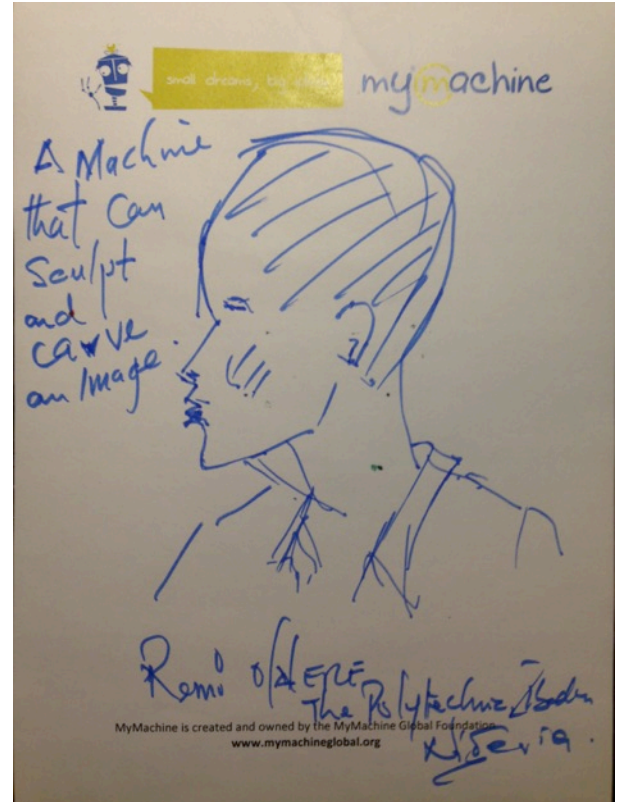 small dreams, big
mymachine
A Machine
that Can
Sculpt
and
carve
an Image.
Remi
The Polytechnic, Ibadan
Nigeria.
MyMachine is created and owned by the MyMachine Global Foundation
www.mymachineglobal.org